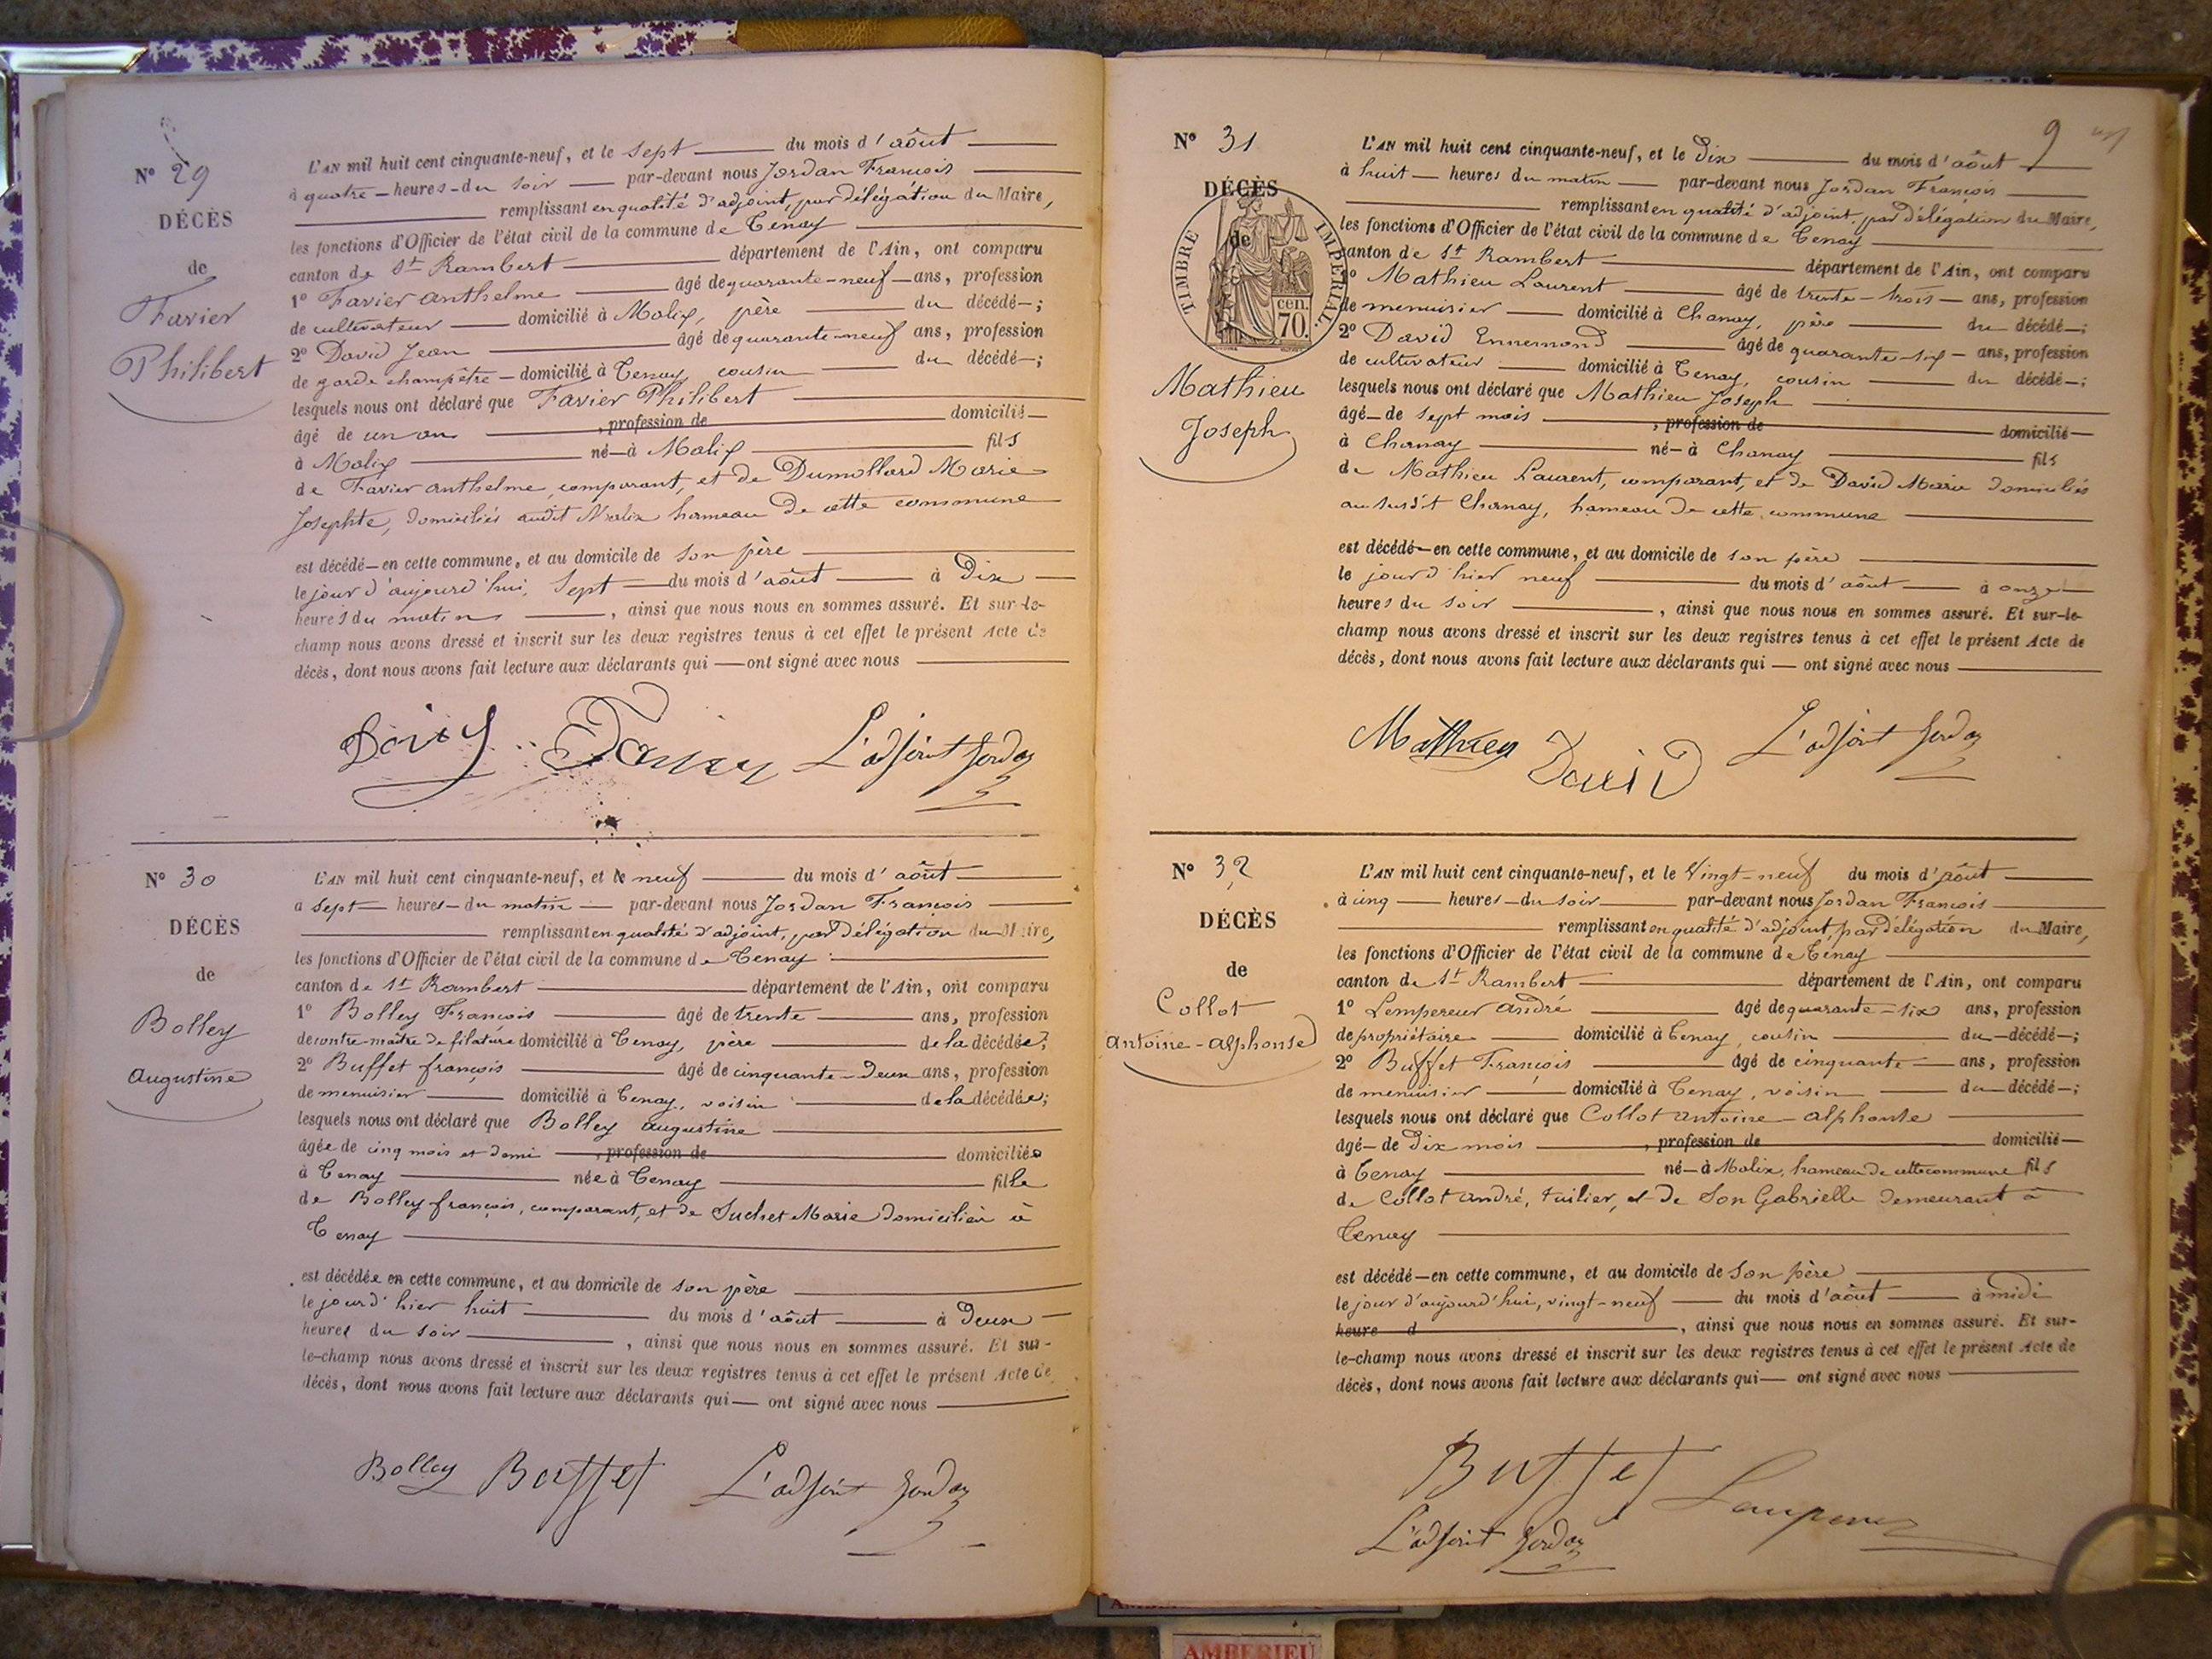 N° 29
DÉCÈS
de
Favier
Philibert
L'AN mil huit cent cinquante-neuf, et le sept du mois d'août
à quatre heures du soir par-devant nous Jordan François
remplissant en qualité d'adjoint, par délégation du Maire,
les fonctions d'Officier de l'état civil de la commune de Tenay
canton de St Rambert département de l'Ain, ont comparu
1° Favier Anthelme âgé de quarante-neuf ans, profession
de cultivateur domicilié à Malix, père du décédé ;
2° David Jean âgé de quarante-neuf ans, profession
de garde champêtre domicilié à Tenay, cousin du décédé ;
lesquels nous ont déclaré que Favier Philibert
âgé de un an , profession de domicilié
à Malix né à Malix fils
de Favier Anthelme, comparant, et de Dumollard Marie
Josephte, domiciliés audit Malix hameau de cette commune
est décédé en cette commune, et au domicile de son père
le jour d'aujourd'hui, sept du mois d'août à dix
heures du matin , ainsi que nous nous en sommes assuré. Et sur-le-
champ nous avons dressé et inscrit sur les deux registres tenus à cet effet le présent Acte de
décès, dont nous avons fait lecture aux déclarants qui ont signé avec nous
L'adjoint Jordan
N° 30
DÉCÈS
de
Bolley
Augustine
L'AN mil huit cent cinquante-neuf, et le neuf du mois d'août
à sept heures du matin par-devant nous Jordan François
remplissant en qualité d'adjoint, par délégation du Maire,
les fonctions d'Officier de l'état civil de la commune de Tenay
canton de St Rambert département de l'Ain, ont comparu
1° Bolley François âgé de trente ans, profession
de contre-maître de filature domicilié à Tenay, père de la décédée ;
2° Buffet françois âgé de cinquante-deux ans, profession
de menuisier domicilié à Tenay, voisin de la décédée ;
lesquels nous ont déclaré que Bolley Augustine
âgée de cinq mois et demi , profession de domiciliée
à Tenay née à Tenay fille
de Bolley françois, comparant, et de Suchet Marie domiciliés à
Tenay
est décédée en cette commune, et au domicile de son père
le jour d'hier huit du mois d'août à deux
heures du soir , ainsi que nous nous en sommes assuré. Et sur-
le-champ nous avons dressé et inscrit sur les deux registres tenus à cet effet le présent Acte de
décès, dont nous avons fait lecture aux déclarants qui ont signé avec nous
Bolley Buffet L'adjoint Jordan
9
N° 31
DÉCÈS
de
TIMBRE IMPÉRIAL
cen.
70.
Mathieu
Joseph
L'AN mil huit cent cinquante-neuf, et le dix du mois d'août
à huit heures du matin par-devant nous Jordan François
remplissant en qualité d'adjoint, par délégation du Maire,
les fonctions d'Officier de l'état civil de la commune de Tenay
canton de St Rambert département de l'Ain, ont comparu
1° Mathieu Laurent âgé de trente-trois ans, profession
de menuisier domicilié à Chanay, père du décédé ;
2° David Ennemond âgé de quarante-six ans, profession
de cultivateur domicilié à Tenay, cousin du décédé ;
lesquels nous ont déclaré que Mathieu Joseph
âgé de sept mois , profession de domicilié
à Chanay né à Chanay fils
de Mathieu Laurent, comparant, et de David Marie domiciliés
au susdit Chanay, hameau de cette commune
est décédé en cette commune, et au domicile de son père
le jour d'hier neuf du mois d'août à onze
heures du soir , ainsi que nous nous en sommes assuré. Et sur-le-
champ nous avons dressé et inscrit sur les deux registres tenus à cet effet le présent Acte de
décès, dont nous avons fait lecture aux déclarants qui ont signé avec nous
Mathieu David L'adjoint Jordan
N° 32
DÉCÈS
de
Collot
Antoine-Alphonse
L'AN mil huit cent cinquante-neuf, et le vingt-neuf du mois d'août
à cinq heures du soir par-devant nous Jordan François
remplissant en qualité d'adjoint, par délégation du Maire,
les fonctions d'Officier de l'état civil de la commune de Tenay
canton de St Rambert département de l'Ain, ont comparu
1° Lempereur André âgé de quarante-six ans, profession
de propriétaire domicilié à Tenay, cousin du décédé ;
2° Buffet François âgé de cinquante ans, profession
de menuisier domicilié à Tenay, voisin du décédé ;
lesquels nous ont déclaré que Collot Antoine-Alphonse
âgé de dix mois , profession de domicilié
à Tenay né à Malix, hameau de cette commune fils
de Collot André, tuilier, et de Son Gabrielle demeurant à
Tenay
est décédé en cette commune, et au domicile de son père
le jour d'aujourd'hui, vingt-neuf du mois d'août à midi
heure d , ainsi que nous nous en sommes assuré. Et sur-
le-champ nous avons dressé et inscrit sur les deux registres tenus à cet effet le présent Acte de
décès, dont nous avons fait lecture aux déclarants qui ont signé avec nous
Buffet
L'adjoint Jordan
AMBERIEU